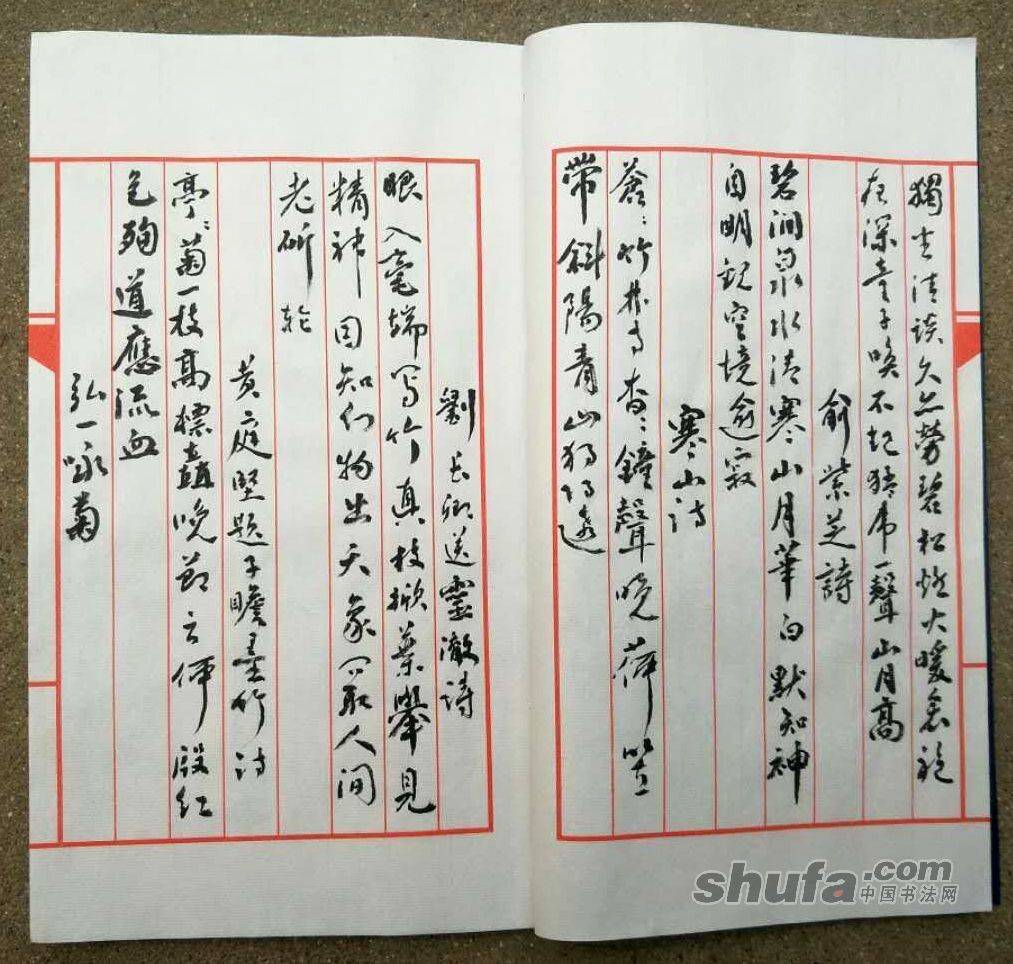 獨坐清谈久亦勞碧松燃火暖衾袍
夜深童子唤不起猛虎一聲山月高
俞紫芝詩
碧澗泉水清寒山月華白默知神
自明观空境逾寂
寒山诗
蒼〻竹林寺杳〻鐘聲晚荷笠
帶斜陽青山独归遠
劉长卿送靈澈诗
眼入毫端写竹真枝掀葉舉見
精神因知幻物出天象问取人间
老斫轮
黄庭堅题子瞻墨竹诗
亭〻菊一枝高標矗晚節云何殷红
色殉道應流血
弘一咏菊
shufa.com
中国书法网